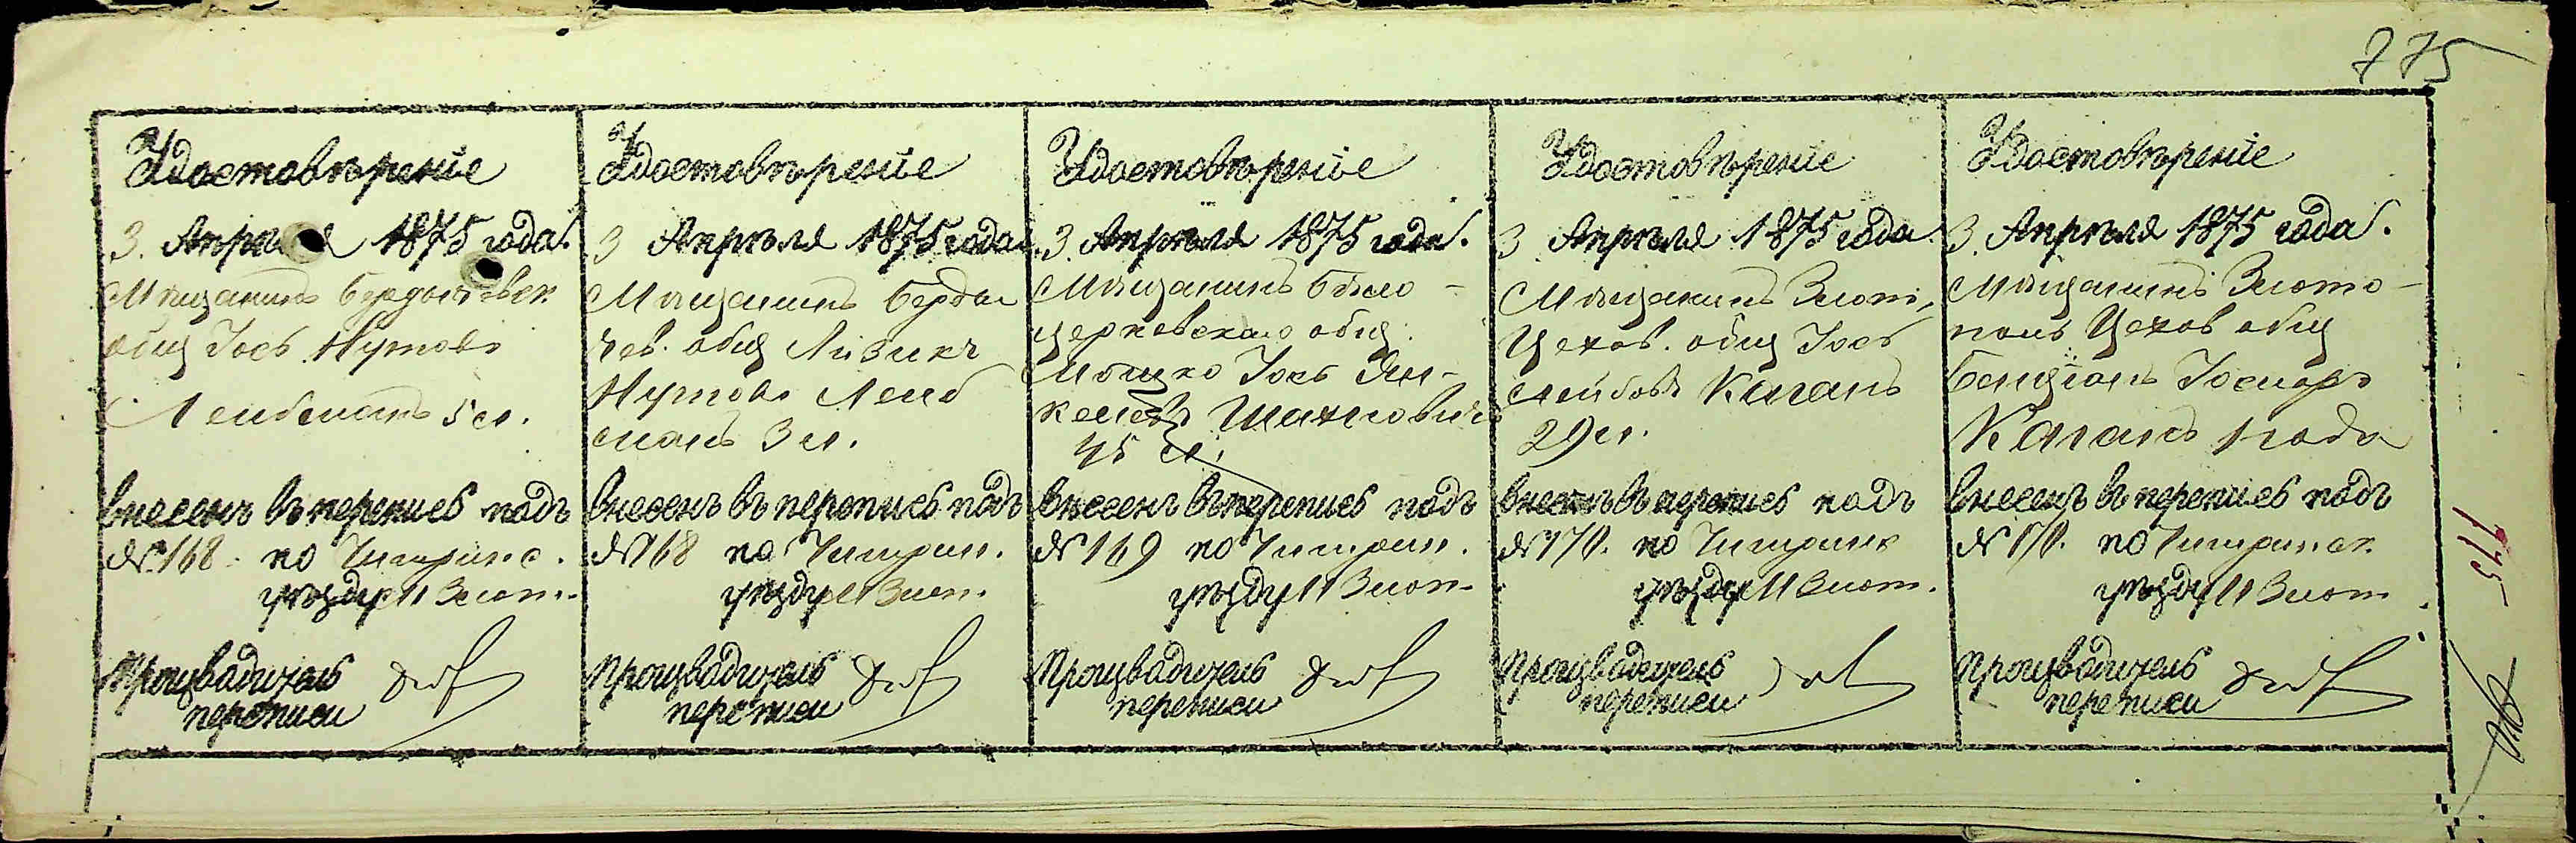 775
Удостовѣреніе
3. Апрѣля 1875 года.
Мѣщанинъ Бердычевск.
общ Іось Нутовъ
Лейбманъ 5 л.
внесенъ въ перепись подъ
№ 168. по Чигринс.
уѣзду М Злот.
Производитель
переписи
Удостовѣреніе
3 Апрѣля 1875 года.
Мѣщанинъ Берды
чев. общ Айзикъ
Нутовъ Лейб
манъ 3 л.
внесенъ въ перепись подъ
№ 168 по Чигрин.
уѣзду М Злот.
Производитель
переписи
Удостовѣреніе
3. Апрѣля 1875 года.
Мѣщанинъ Бѣло-
церковскаго общ.
Мошко Іось Ян-
келевъ Шахновичъ
45 л.
внесенъ въ перепись подъ
№ 169 по Чигрин.
уѣзду М Злот.
Производитель
переписи
Удостовѣреніе
3 Апрѣля 1875 года.
Мѣщанинъ Злот.
Цехов. общ Іось
Лейбовъ Каганъ
29 л.
внесенъ въ перепись подъ
№ 170. по Чигринс
уѣзду М Злот.
Производитель
переписи
Удостовѣреніе
3. Апрѣля 1875 года.
Мѣщанинъ Злото-
поль Цехов общ
Бенціонъ
Каганъ 1 года
внесенъ въ перепись подъ
№ 170. по Чигринск.
уѣзду М Злот.
Производитель
переписи